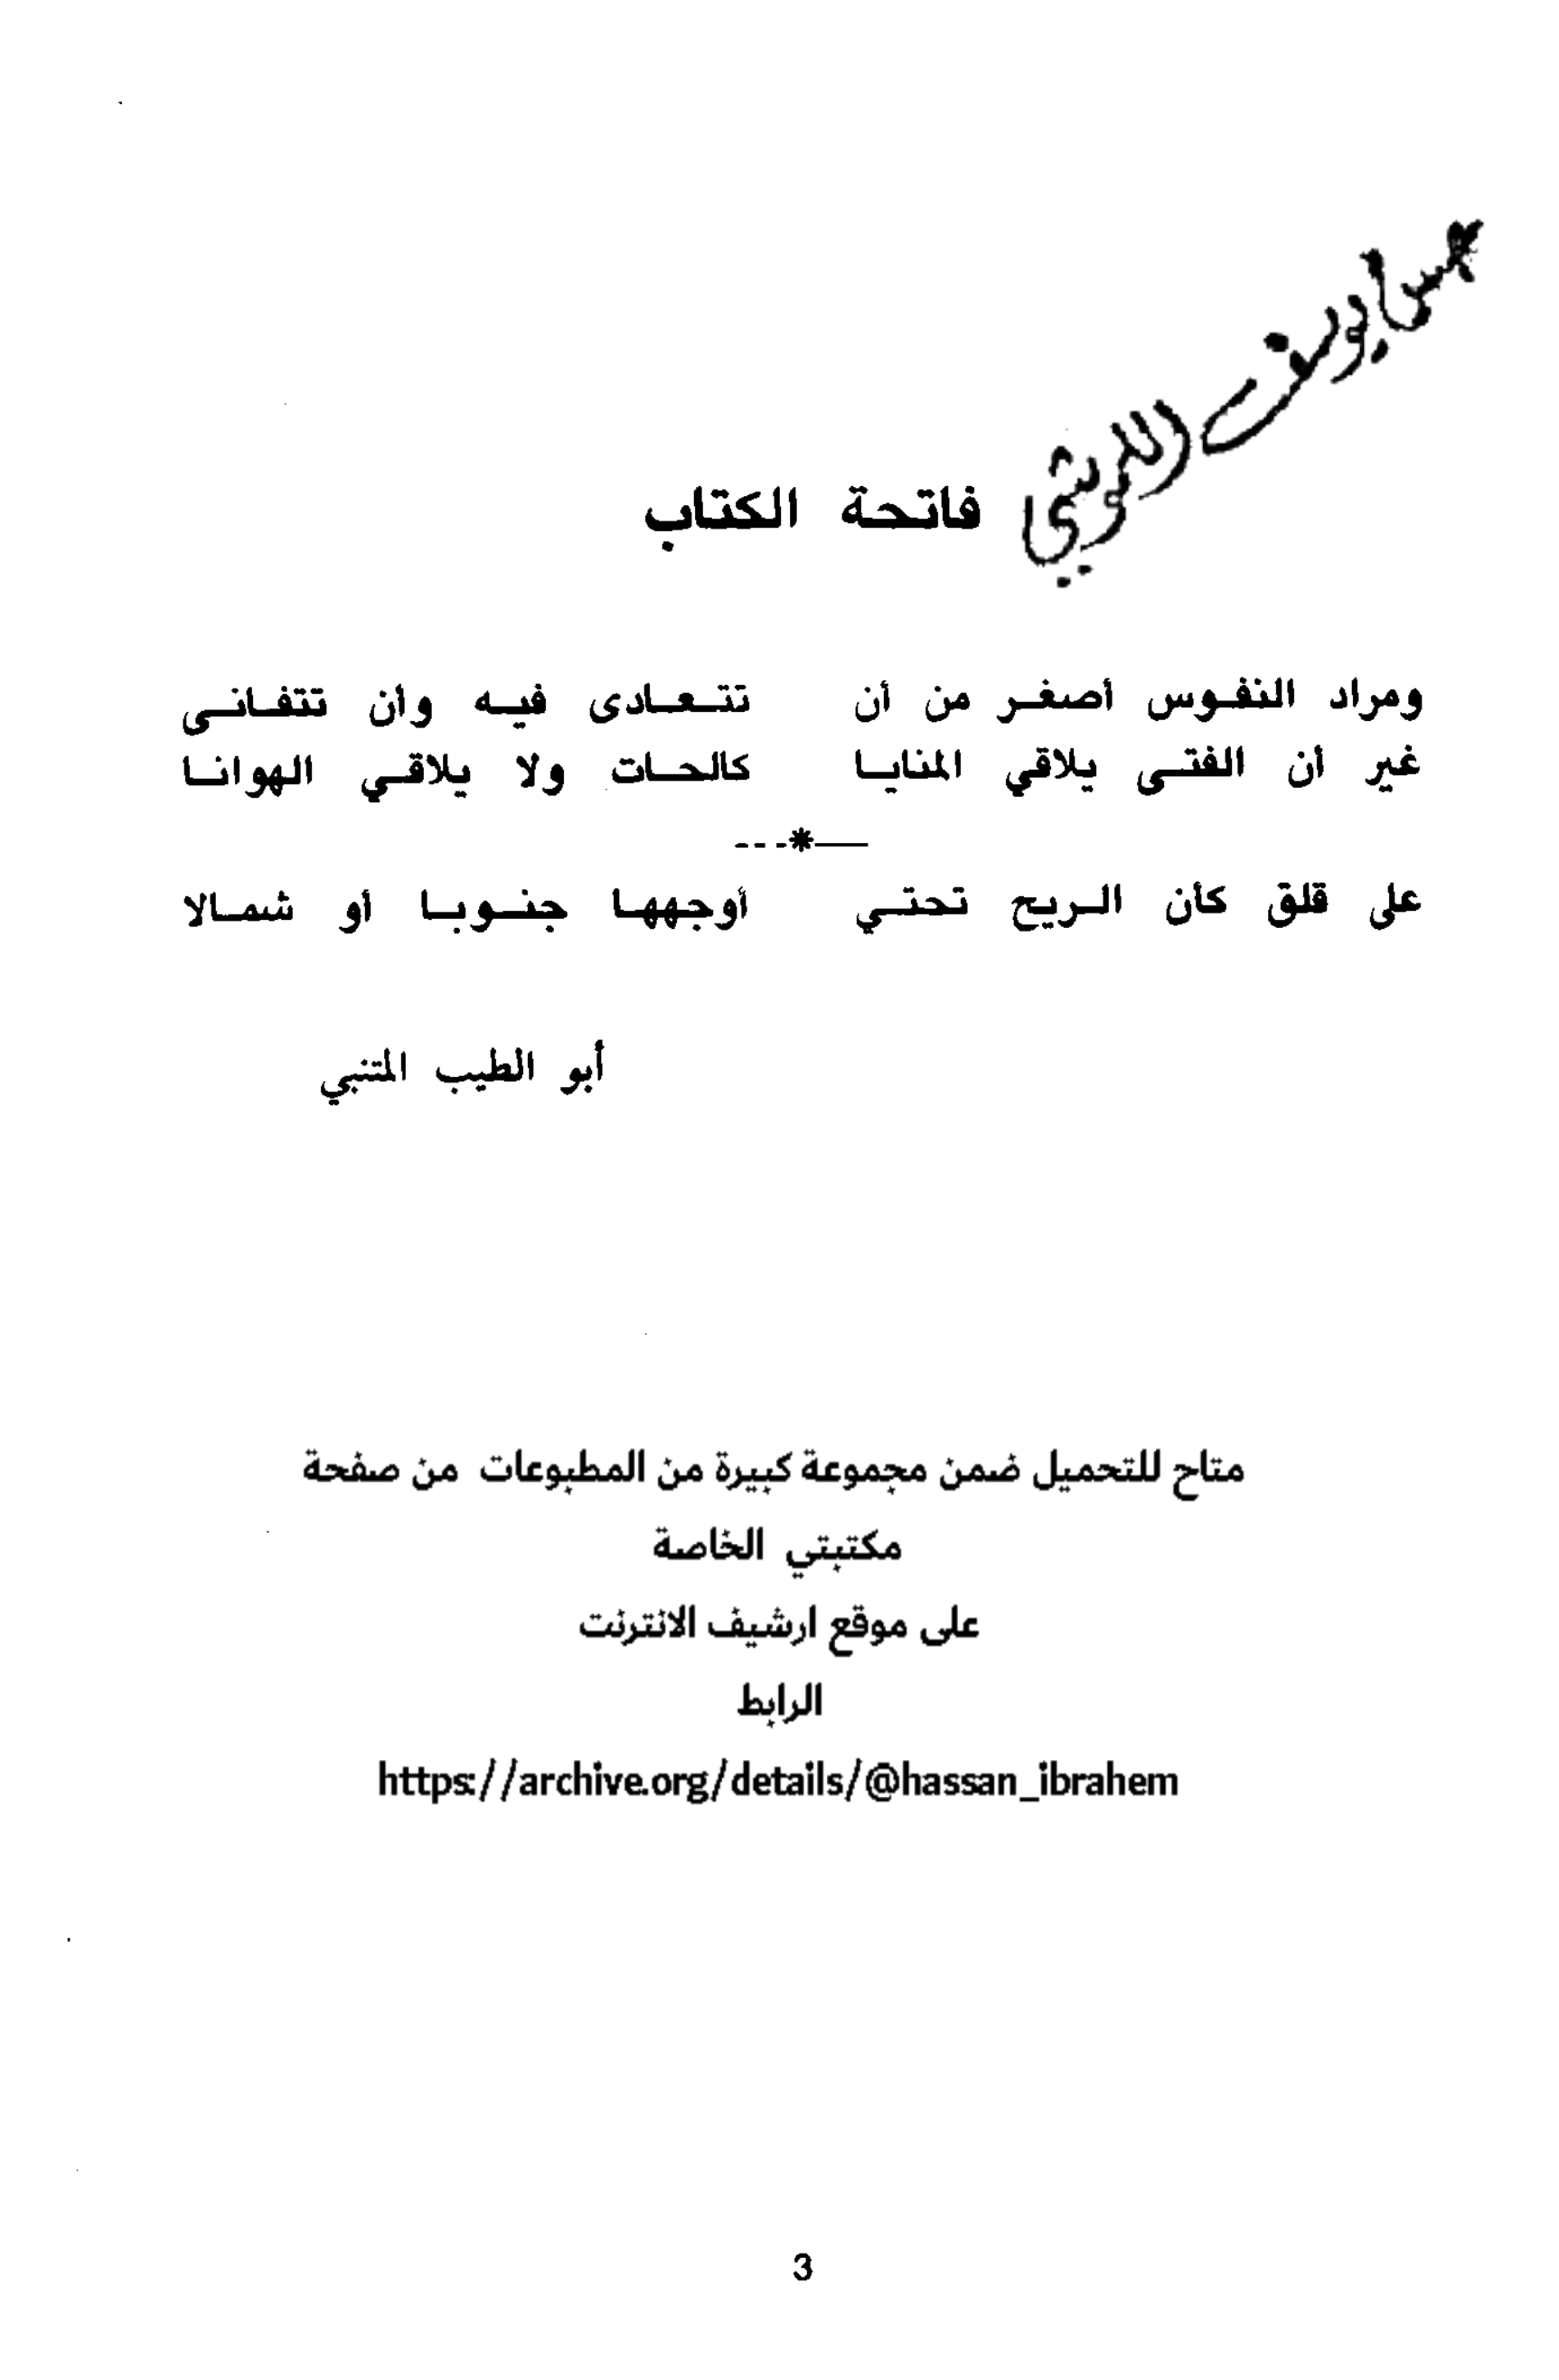 فاتحة الكتاب
ومراد النفوس أصغر من أن تتعادى فيه وأن تتفانى
غير أن الفتى يلاقي المنايا كالحات ولا يلاقي الهوانا
---*—
على قلق كأن الريح تحتي أوجهها جنوبا أو شمالا
أبو الطيب المتنبي
متاح للتحميل ضمن مجموعة كبيرة من المطبوعات من صفحة
مكتبتي الخاصة
على موقع ارشيف الانترنت
الرابط
https://archive.org/details/@hassan_ibrahem
3